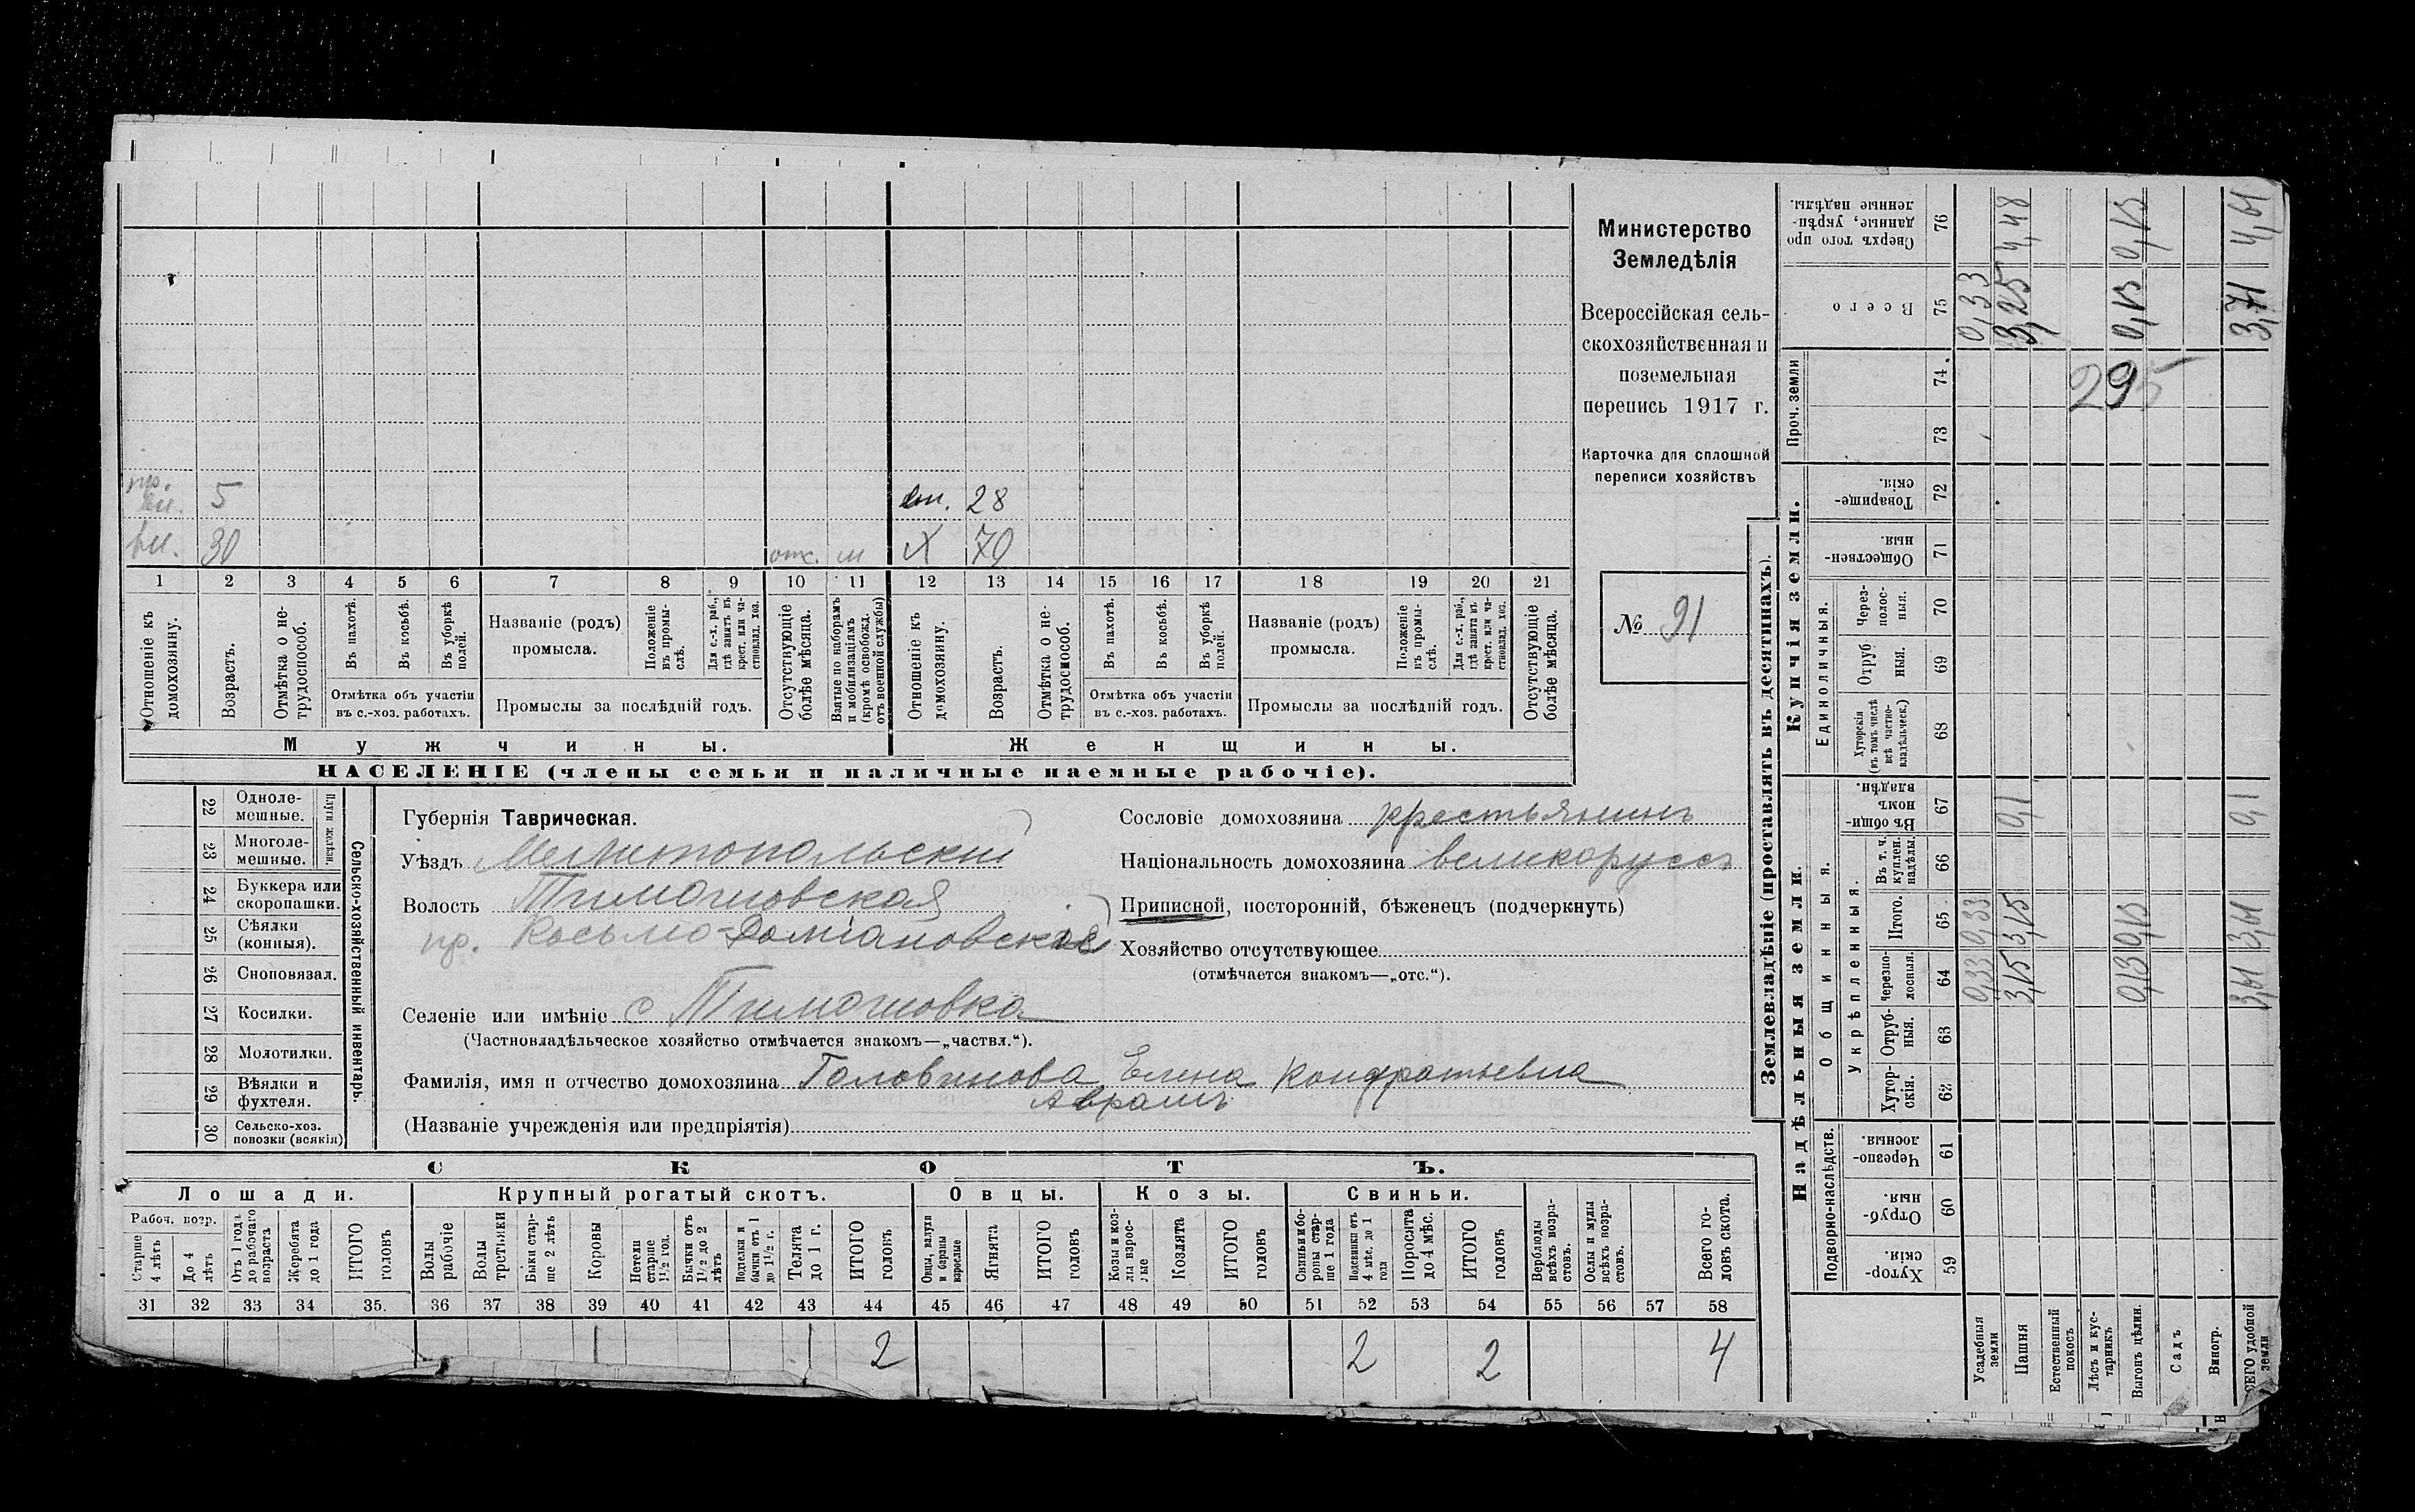 пр.
вн. 5
вн. 28
вн. 30
отс. м
X 70
1 2 3 4 5 6 7 8 9 10 11 12 13 14 15 16 17 18 19 20 21
Отношеніе къ домохозяину.
Возрастъ.
Отмѣтка о нетрудоспособ.
Въ пахотѣ.
Въ косьбѣ.
Въ уборкѣ полей.
Отмѣтка объ участіи
въ с.-хоз. работахъ.
Названіе (родъ)
промысла.
Положеніе въ промыслѣ.
Для с.-х. раб., гдѣ занятъ въ крест. или частновлад. хоз.
Промыслы за послѣдній годъ.
Отсутствующіе болѣе мѣсяца.
Взятые по наборамъ и мобилизаціямъ (кромѣ освобожд. отъ военной службы)
Отношеніе къ домохозяину.
Возрастъ.
Отмѣтка о нетрудоспособ.
Въ пахотѣ.
Въ косьбѣ.
Въ уборкѣ полей.
Отмѣтка объ участіи
въ с.-хоз. работахъ.
Названіе (родъ)
промысла.
Положеніе въ промыслѣ.
Для с.-х. раб., гдѣ занята въ крест. или частновлад. хоз.
Промыслы за послѣдній годъ.
Отсутствующіе болѣе мѣсяца.
Мужчины.
Женщины.
НАСЕЛЕНІЕ (члены семьи и наличные наемные рабочіе).
Министерство
Земледѣлія
Всероссійская сель-
скохозяйственная и
поземельная
перепись 1917 г.
Карточка для сплошной
переписи хозяйствъ
№ 91
22 Одноле-
мешные.
23 Многоле-
мешные.
Плуги желѣзн.
24 Буккера или
скоропашки.
25 Сѣялки
(конныя).
26 Сноповязал.
27 Косилки.
28 Молотилки.
29 Вѣялки и
фухтеля.
30 Сельско-хоз.
повозки (всякія)
Сельско-хозяйственный инвентарь.
Губернія Таврическая.
Уѣздъ Мелитопольскій
Волость Тимошовская
пр. Косьмо-Доміановской
Селеніе или имѣніе с Тимошовка
(Частновладѣльческое хозяйство отмѣчается знакомъ—„частвл.“).
Фамилія, имя и отчество домохозяина Головинова Елена Кондратьевна
Аврамъ
(Названіе учрежденія или предпріятія)
Сословіе домохозяина крестьянинъ
Національность домохозяина великоруссъ
Приписной, посторонній, бѣженецъ (подчеркнуть)
Хозяйство отсутствующее
(отмѣчается знакомъ—„отс.“).
СКОТЪ.
Лошади. Крупный рогатый скотъ. Овцы. Козы. Свиньи.
Рабоч. возр.
Старше 4 лѣтъ
До 4 лѣтъ
Отъ 1 года до рабочаго возраста
Жеребята до 1 года
ИТОГО головъ
Волы рабочіе
Волы третьяки
Быки старше 2 лѣтъ
Коровы
Нетели старше 1½ год.
Бычки отъ 1½ до 2 лѣтъ
Подтелки и бычки отъ 1 до 1½ г.
Телята до 1 г.
ИТОГО головъ
Овцы, валухи и бараны взрослые
Ягнята
ИТОГО головъ
Козы и козлы взрослые
Козлята
ИТОГО головъ
Свиньи и боровы старше 1 года
Подсвинки отъ 4 мѣс. до 1 года
Поросята до 4 мѣс.
ИТОГО головъ
Верблюды всѣхъ возрастовъ.
Ослы и мулы всѣхъ возрастовъ.
Всего головъ скота.
31 32 33 34 35. 36 37 38 39 40 41 42 43 44 45 46 47 48 49 50 51 52 53 54 55 56 57 58
1 1 2 2 2 4
Землевладѣніе (проставлять въ десятинахъ).
Надѣльныя земли.
Купчія земли.
Проч. земли
Подворно-наслѣдств.
Общинныя.
Укрѣпленныя.
Единоличныя.
Хутор-
скія. 59
Отруб-
ныя. 60
Черезпо-
лосныя. 61
Хутор-
скія. 62
Отруб-
ныя. 63
Черезпо-
лосныя. 64
Итого. 65
Въ т. ч. куплен. надѣлы. 66
Въ общинномъ владѣн. 67
Хуторскія (въ томъ числѣ всѣ частновладѣльческ.) 68
Отруб
ныя. 69
Через-
полос-
ныя. 70
Обществен-
ныя. 71
Товарище-
скія. 72
73
74
Всего 75
Сверхъ того про
данные, укрѣп-
ленные надѣлы. 76
Усадебныя земли 0,33 0,33 0,33
Пашня 3,15 3,15 0,1 3,25 4,48
Естественный покосъ
Лѣсъ и кус-
тарникъ
Выгонъ цѣлин. 0,13 0,13 0,13 0,13
Садъ
Виногр.
ВСЕГО удобной земли 3,61 3,61 0,1 3,71 4,61
295